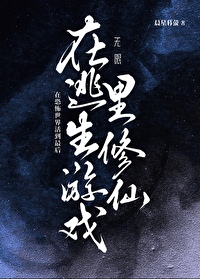 晨星移萤 著
无限
在逃生游戏
里修仙
在恐怖世界活到最后